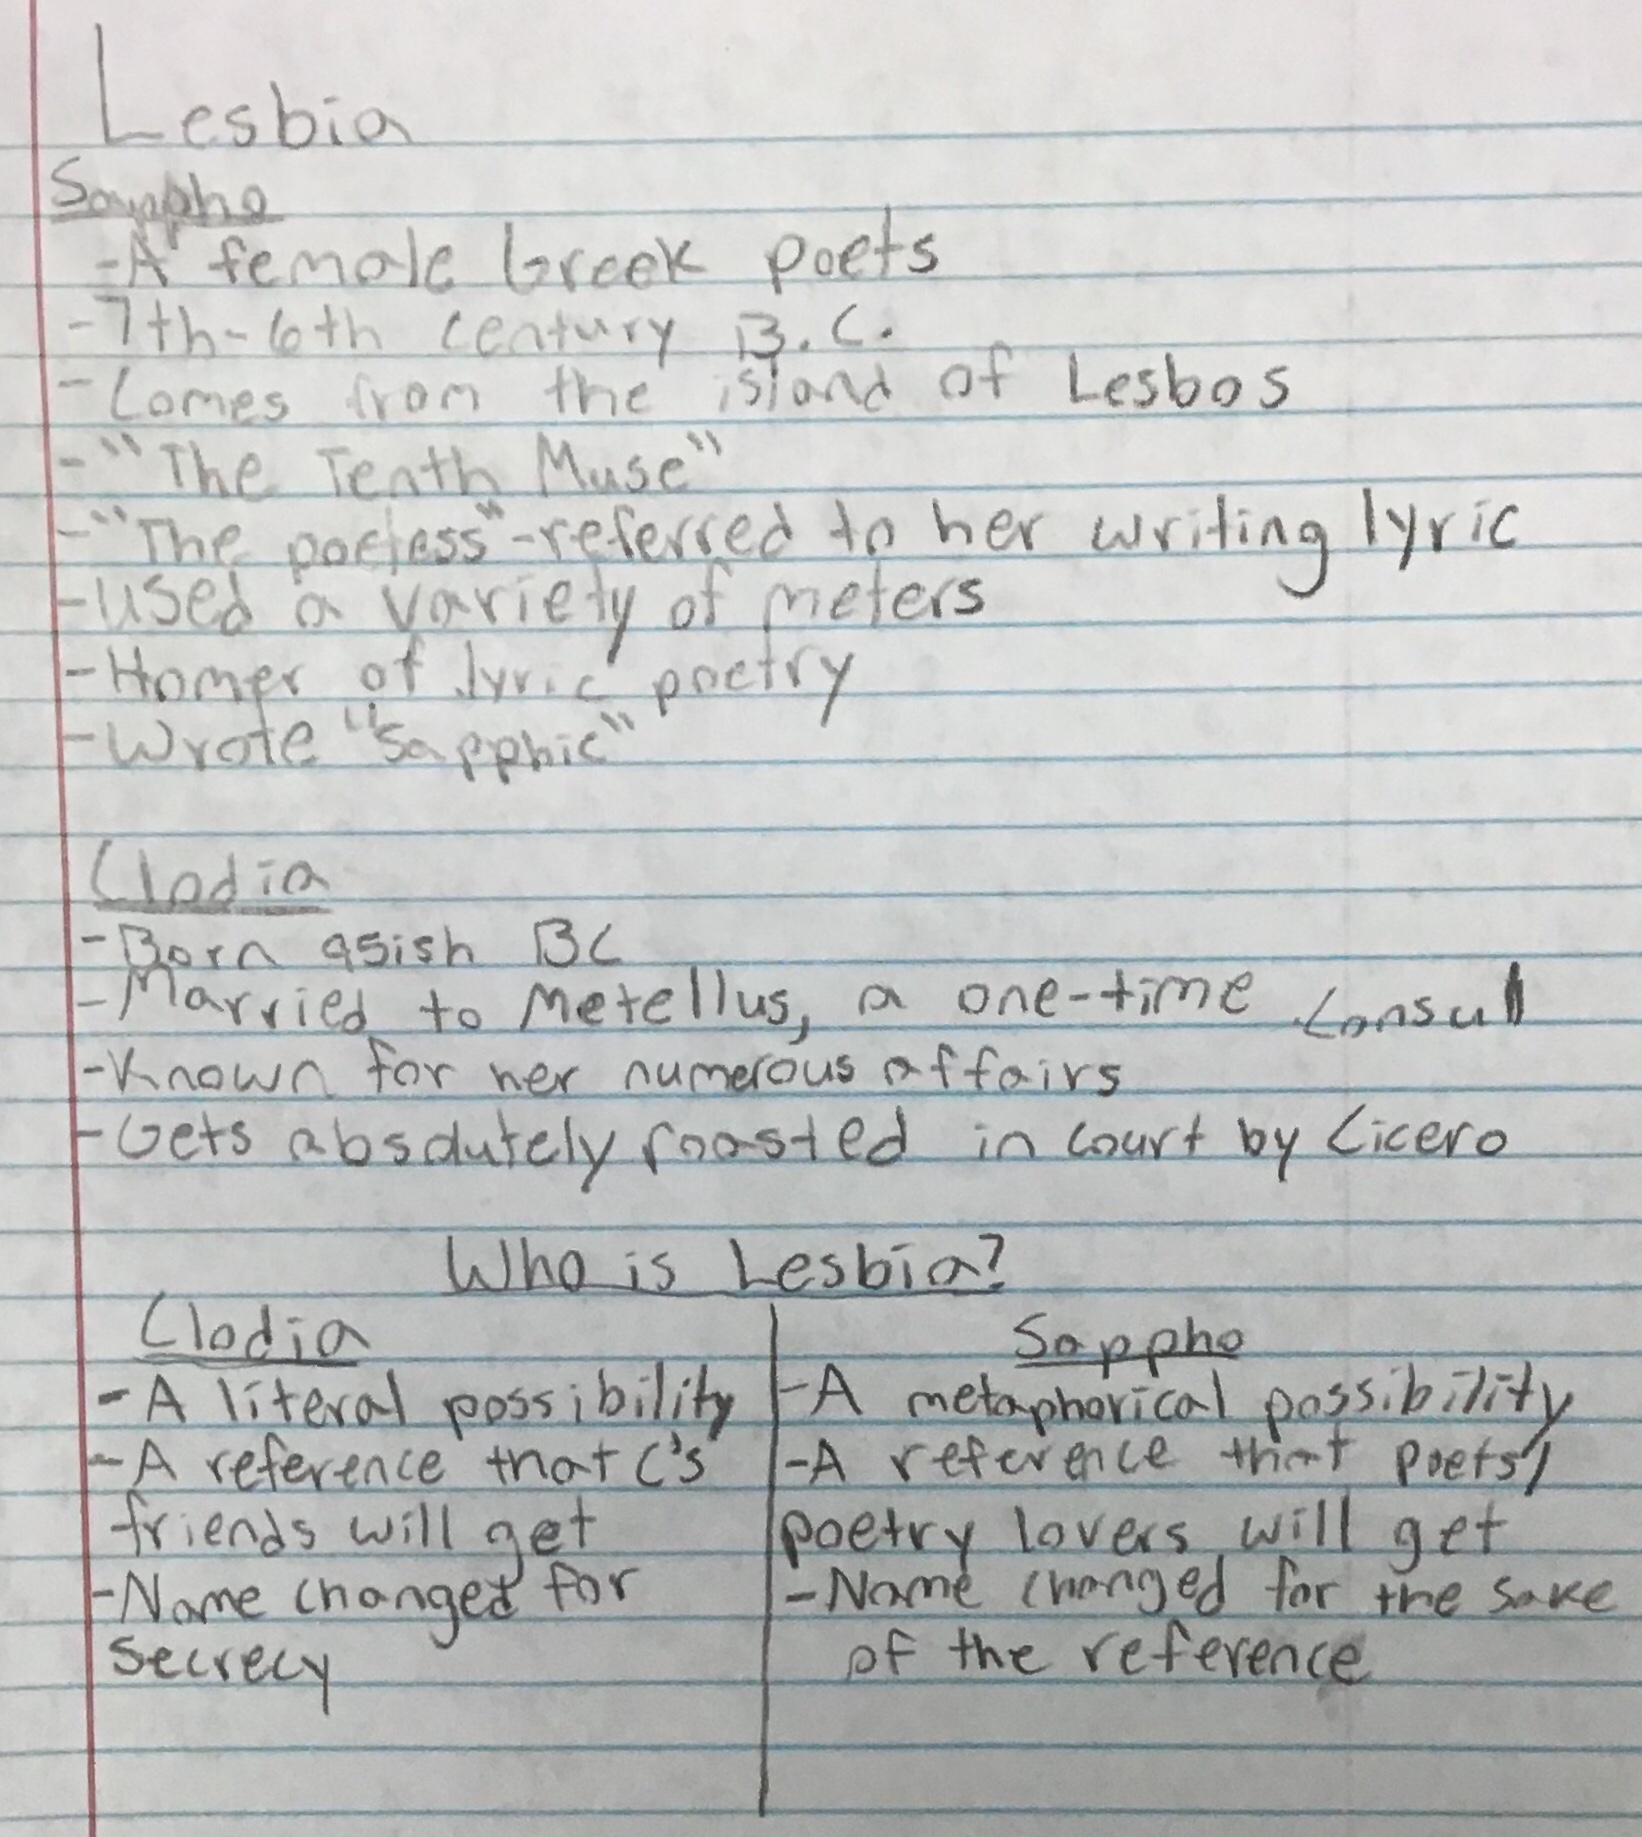 Lesbia
Sappho
-A female Greek poets
-7th-6th century B.C.
-Comes from the island of Lesbos
-"The Tenth Muse"
-"The poetess"-referred to her writing lyric
-used a variety of meters
-Homer of lyric poetry
-Wrote "Sapphic"
Clodia
-Born 95ish BC
-Married to Metellus, a one-time consul
-Known for her numerous affairs
-Gets absolutely roasted in court by Cicero
Who is Lesbia?
Clodia
-A literal possibility
-A reference that C's
friends will get
-Name changed for
secrecy
Sappho
-A metaphorical possibility
-A reference that poets/
poetry lovers will get
-Name changed for the sake
of the reference